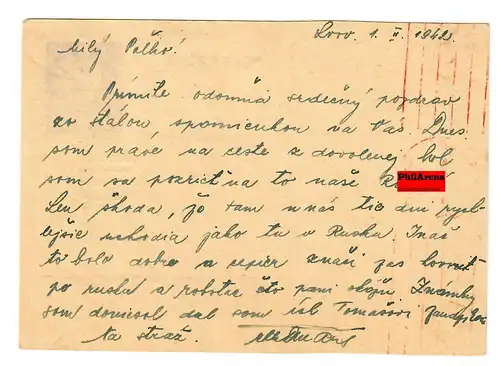 Lvov. 1. II. 1942.
Milý Paľko!
Prijmite odomňa srdečný pozdrav
zo stálou spomienkou na Vás. Dnes
som práve na ceste z dovolenej bol
som sa pozrieť na to naše
PhilArena
Len škoda, že tam u nás tie dni rých
lejšie uchodia jako tu v Rusku. Ináč
to bolo dobre a zas hovoriť
po rusku a robotu čo pani
som doniesol dal som ich Tomášovi
Na stráž.